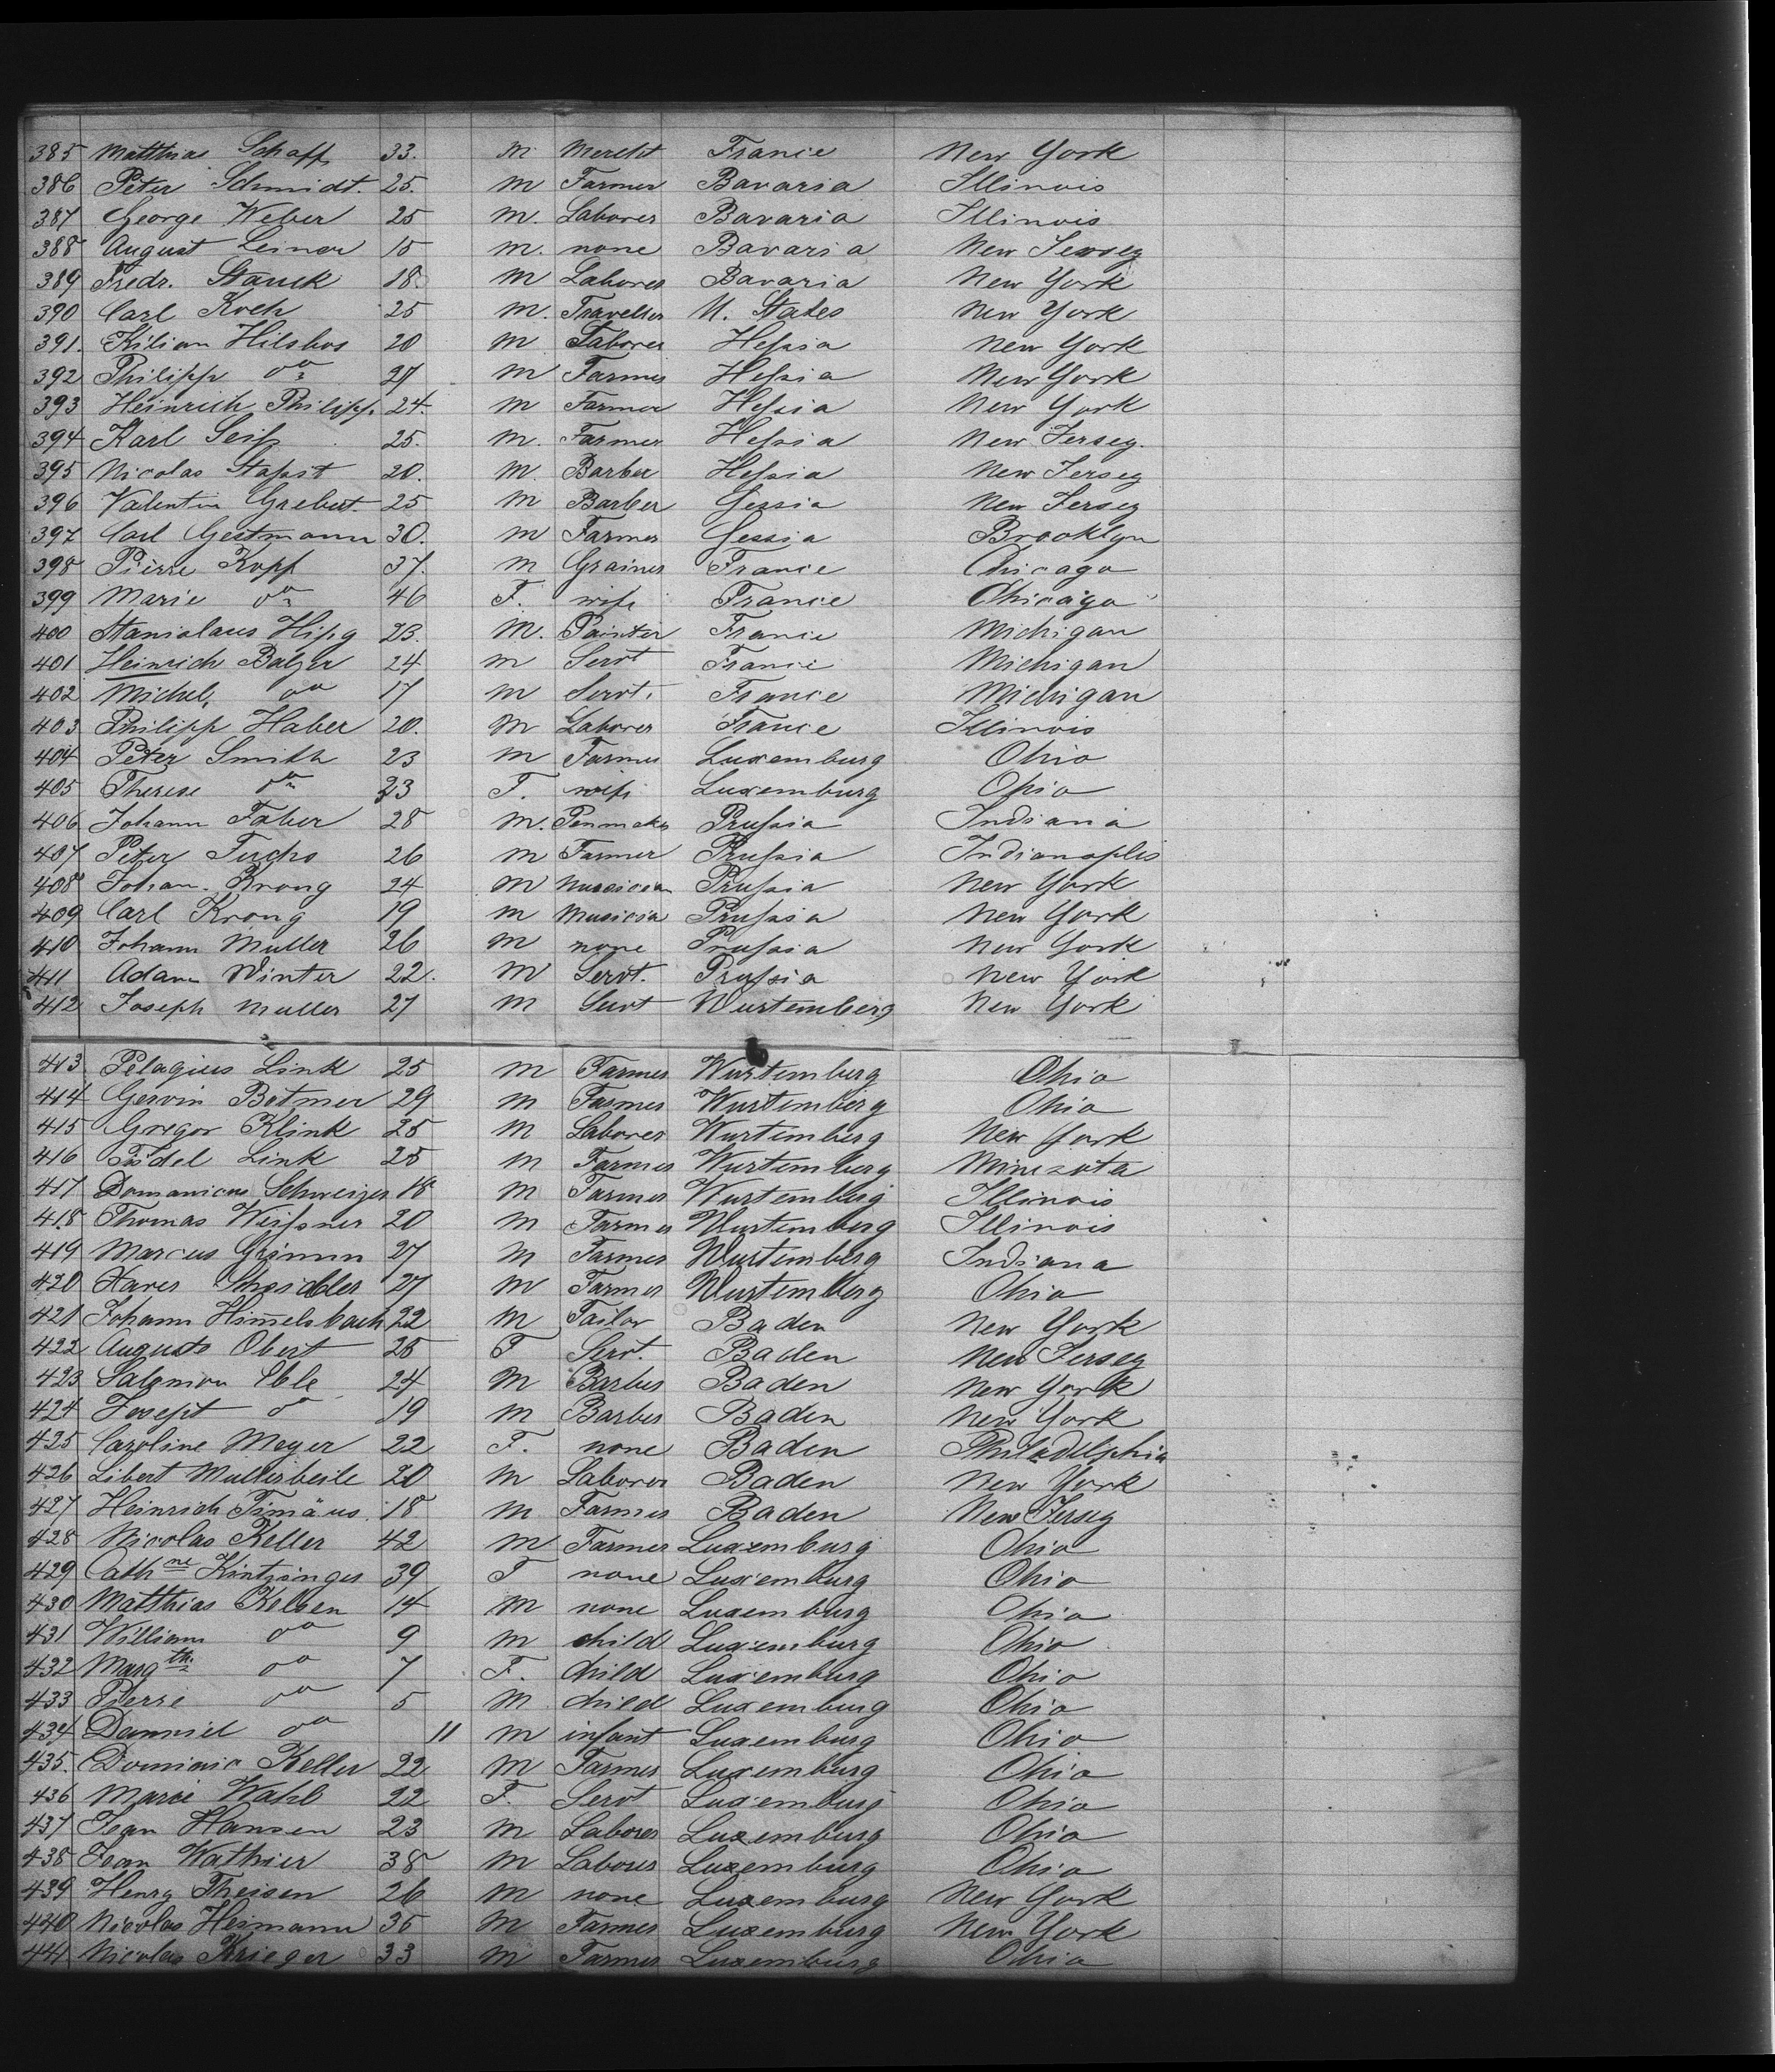 385 Matthias Schaff 33. M Mercht France New York
386 Peter Schmidt. 25. M Farmer Bavaria Illinois
387 George Weber 25 M. Laborer Bavaria Illinois
388 August Leiner 15 M. none Bavaria New Jersey
389 Fredr. Stauck 18 M Laborer Bavaria New York
390 Carl Koch 25 M. Traveller U. States New York
391. Kilian Hilsbos 20 M Laborer Hessia New York
392 Philipp do 27 M Farmer Hessia New York
393 Heinrich Philipp. 24. M Farmer Hessia New York
394 Karl Seiß 25. M. Farmer Hessia New Jersey.
395 Nicolas Stapst 20. M. Barber Hessia New Jersey
396 Valentin Grebert 25 M Barber Hessia New Jersey
397 Carl Gestmann 30. M Farmer Hessia Brooklyn
398 Pierre Kopf 37. M Grainer France Chicago
399 Marie do 46 F. wife France Chicago
400 Stanislaus Hißg 23. M. Painter France Michigan
401 Heinrich Balzer 24 M Servt France Michigan
402 Michel, do 17 M Servt. France Michigan
403 Philipp Haber 20. M Laborer France Illinois
404 Peter Smith 23 M Farmer Luxemburg Ohio
405 Therese do 23 F. wife Luxemburg Ohio
406 Johann Faber 28 M. Penmaker Prussia Indiana
407 Peter Fuchs 26 M Farmer Prussia Indianaplis
408 Johan. Krong 24 M Mussician Prussia New York
409 Carl Krong 19 M Musicia Prussia New York
410 Johann Muller 26 M none Prussia New York
411 Adam Winter 22. M Servt. Prussia New York
412 Joseph Muller 27 M Servt Wurtemberg New York
413 Pelagius Link 25 M Farmer Wurtemberg Ohio
414 Gervin Botmer 29 M Farmer Wurtemberg Ohio
415 Gregor Klink 25 M Laborer Wurtemberg New York
416 Fidel Link 25 M Farmer Wurtemberg Minesota
417 Domanicus Schweizer 18 M Farmer Wurtemberg Illinois
418 Thomas Weissner 20 M Farmer Wurtemberg Illinois
419 Marcus Grimm 27 M Farmer Wurtemberg Indiana
420 Xaver Scheidler 27 M Farmer Wurtemberg Ohio
421 Johann Himelsbach 22 M Tailor Baden New York
422 Augusto Obert 25 F Servt. Baden New Jersey
423 Salomon Eble 24 M Barber Baden New York
424 Joseph do 19 M Barber Baden New York
425 Caroline Meyer 22 F. none Baden Philadelphia
426 Libert Mullerbeile 20 M Laborer Baden New York
427 Heinrich Timäus 18 M Farmer Baden New Jersey
428 Nicolas Keller 42 M Farmer Luxemburg Ohio
429 Cathne Kintzinger 39 F none Luxemburg Ohio
430 Matthias Kelsen 14 M none Luxemburg Ohio
431 William do 9 M child Luxemburg Ohio
432 Margth. do 7 F. child Luxemburg Ohio
433 Pierre do 5 M child Luxemburg Ohio
434 Danniel do 11 M infant Luxemburg Ohio
435. Dominic Keller 22 M Farmer Luxemburg Ohio
436 Marie Wahl 22 F. Servt Luxemburg Ohio
437 Jean Hansen 23 M Laborer Luxemburg Ohio
438 Jean Wathier 38 M Laborer Luxemburg Ohio
439 Henry Theisen 26 M none Luxemburg New York
440 Nicolas Heimann 35 M Farmer Luxemburg New York
441 Nicolas Krieger 33 M Farmer Luxemburg Ohio